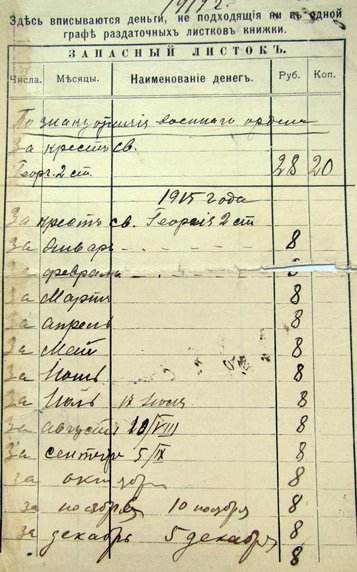 Здѣсь вписываются деньги, не подходящія ни въ одной
графѣ раздаточныхъ листковъ книжки.
ЗАПАСНЫЙ ЛИСТОКЪ.
Числа. Мѣсяцы. Наименованіе денегъ. Руб. Коп.
По знаку отличія военнаго ордена
За крестъ св.
Георг. 2 ст. 28 20
1915 года
За крестъ св. Георгія 2 ст
За Январь 8
За февраль 8
За Мартъ 8
За апрель 8
За Май 8
За Июнь 8
За Июль 8
За августъ /VIII 8
За сентябрь 5/IX 8
за октябрь 8
за ноябрь 10 ноября 8
за декабрь 5 декабря 8
8